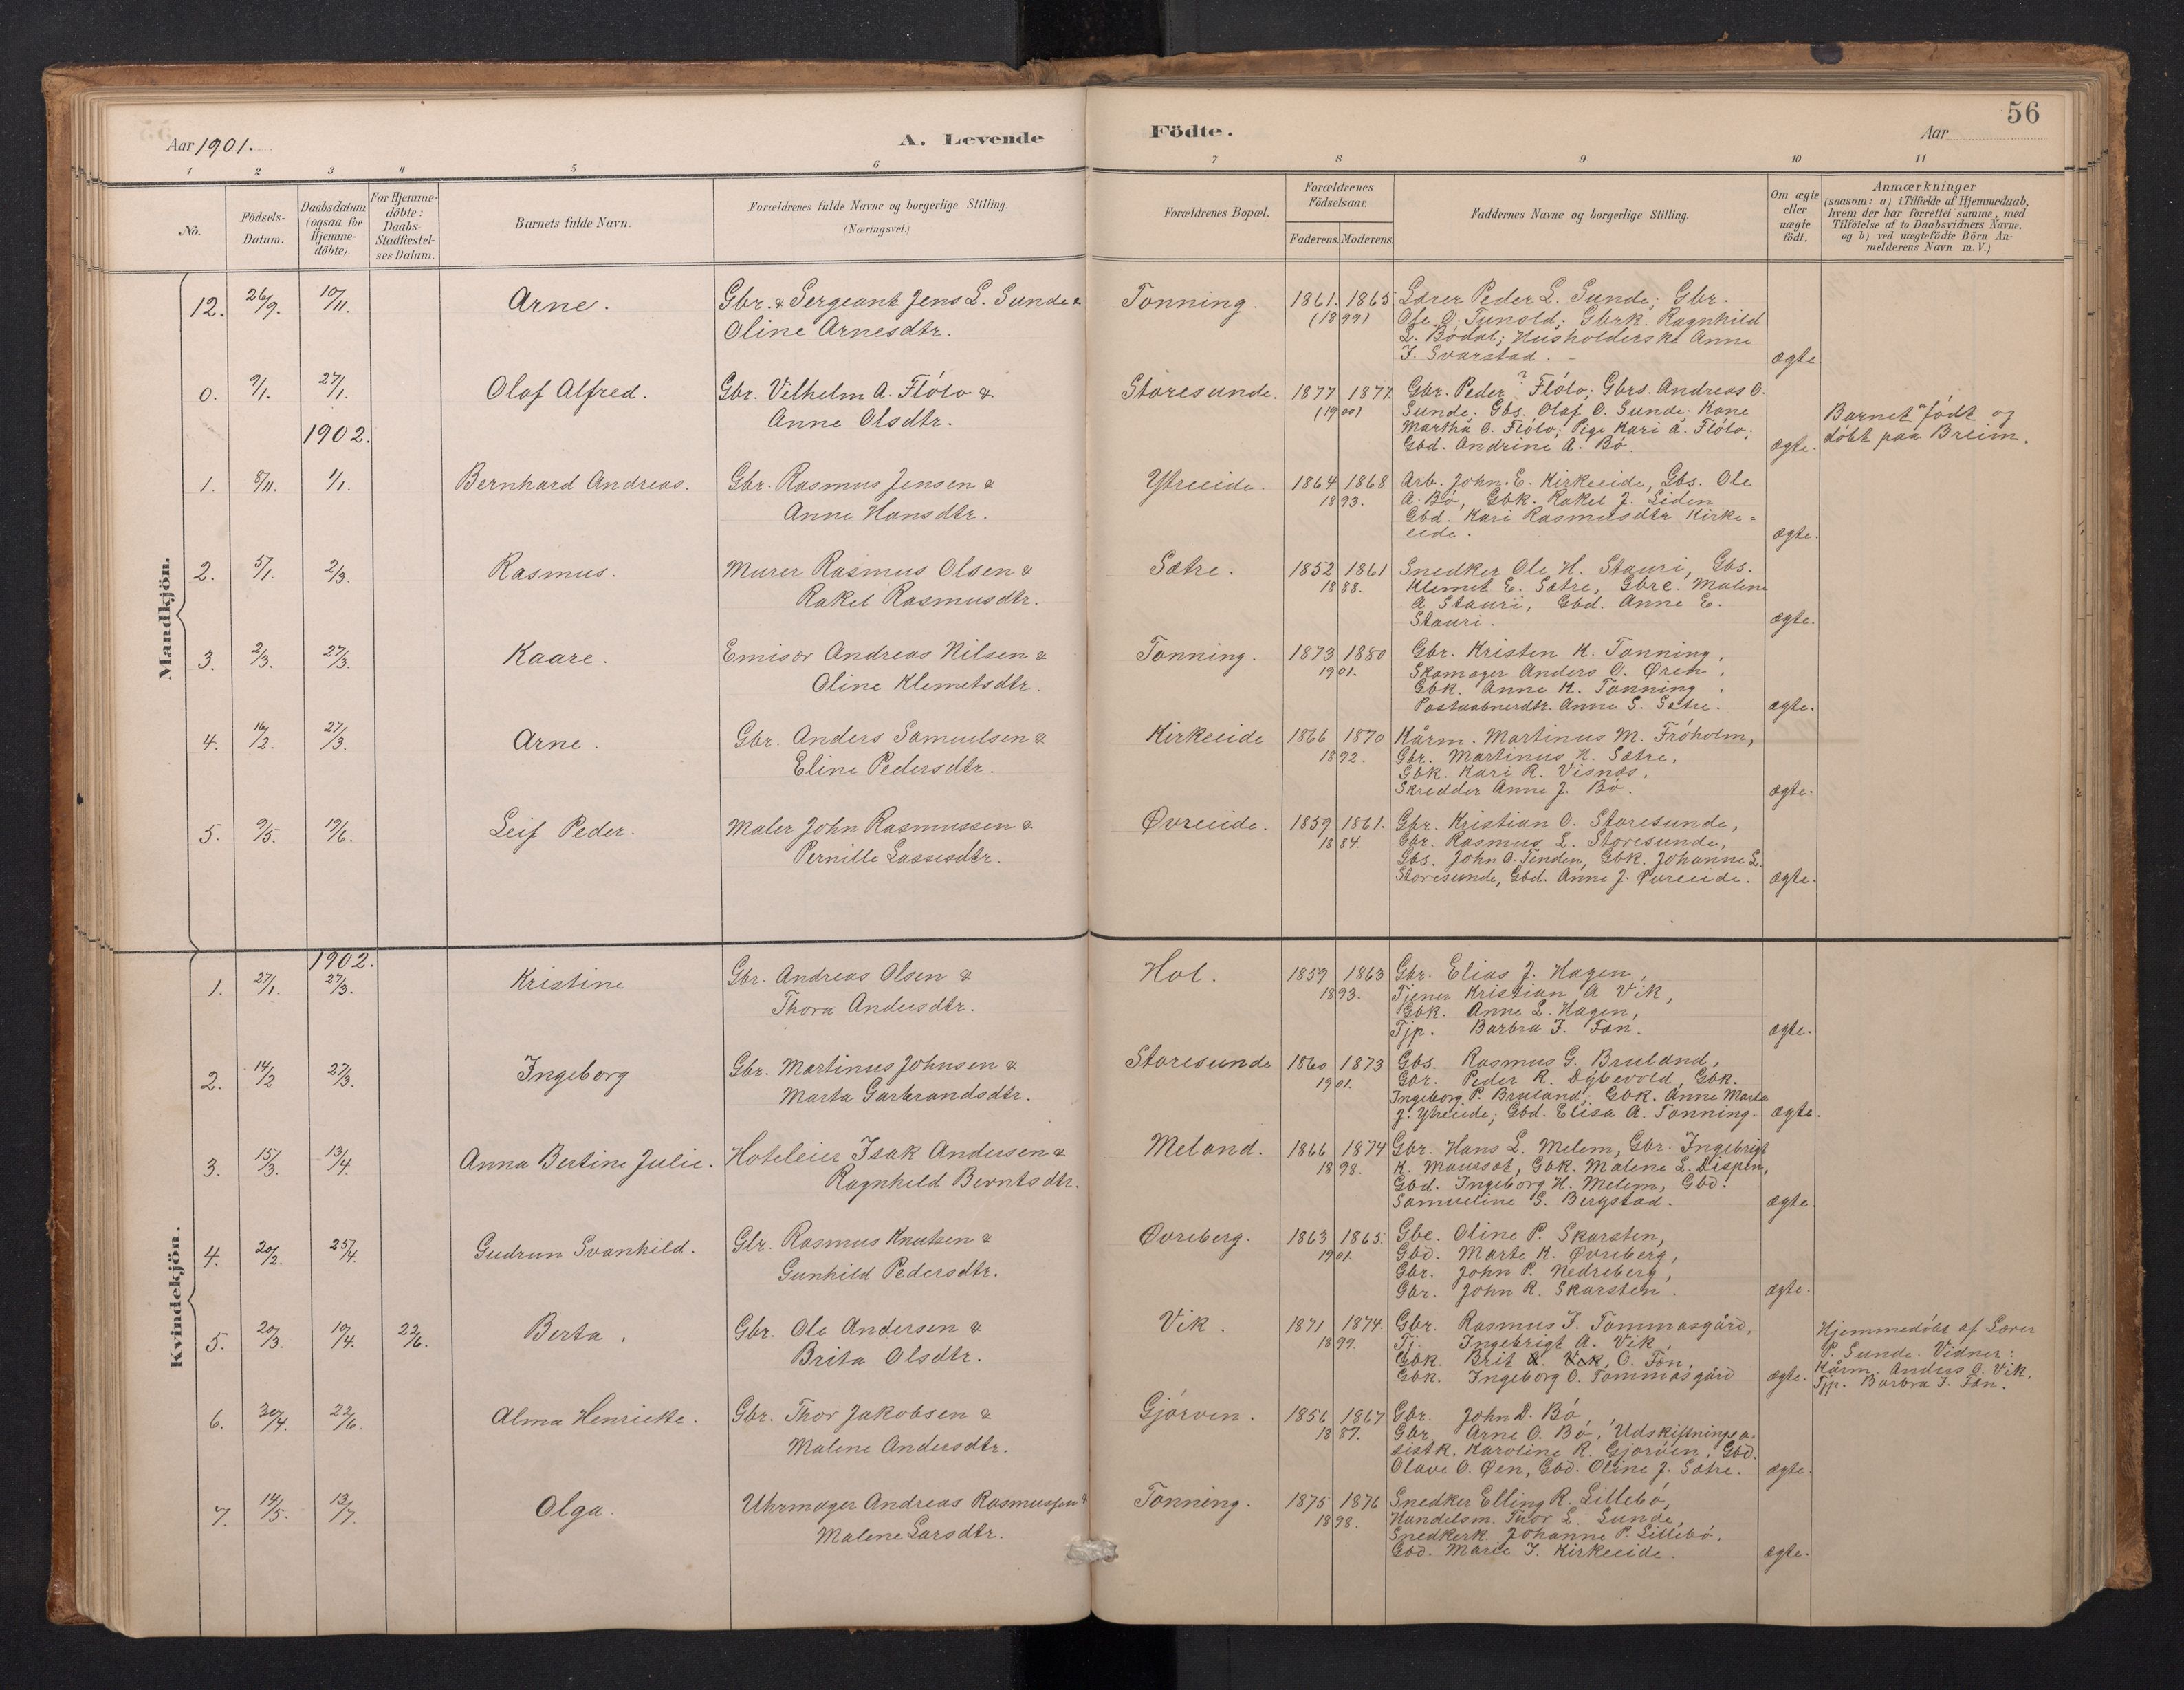 56
Aar 1901.
A. Levende
Födte.
Aar
1 2 3 4 5 6 7 8 9 10 11
No.
Födsels-
Datum.
Daabsdatum
(ogsaa for
Hjemme-
döbte).
For Hjemme-
döbte:
Daabs-
Stadfæstel-
ses Datum.
Barnets fulde Navn.
Forældrenes fulde Navne og borgerlige Stilling.
(Næringsvei.)
Forældrenes Bopæl.
Forældrenes
Födselsaar.
Faderens. Moderens.
Faddernes Navne og borgerlige Stilling.
Om ægte
eller
uægte
födt.
Anmærkninger
(saasom: a) i Tilfælde af Hjemmedaab,
hvem der har forrettet samme, med
Tilföielse af to Daabsvidners Navne.
og b) ved uægtefödte Börn An-
melderens Navn m. V.)
Mandkjön.
12. 26/9. 10/11. Arne. Gbr. & Sergeant Jens L. Sunde &
Oline Arnesdtr.
Tonning. 1861. 1865.
(1899)
Lærer Peder L. Sunde; Gbr.
Ole O. Tunold; Gbrk. Ragnhild
L. Bödal; Husholderske Anne
J. Svarstad. ægte
0. 9/1. 27/1. Olaf Alfred. Gbr. Vilhelm A. Flölo &
Anne Olsdtr.
Storesunde. 1877 1877.
(1900)
Gbr. Peder ? Flölo; Gbrs. Andreas O.
Sunde; Gbs. Olaf O. Sunde; Kone
Martha O. Flölo; Pige Kari A. Flölo;
Gbd. Andrine A. Bö. ægte.
Barnet födt og
döbt paa Breim.
1902.
1. 8/11. 1/1. Bernhard Andreas. Gbr. Rasmus Jensen &
Anne Hansdtr.
Ytreeide. 1864 1868
1893.
Arb. John E. Kirkeeide, Gbs. Ole
A. Bö, Gbk. Rakel J. Liden
Gbd. Kari Rasmusdtr Kirke-
eide. ægte.
2. 5/1. 2/3. Rasmus. Murer Rasmus Olsen &
Rakel Rasmusdtr.
Sætre. 1852 1861
1888.
Snedker Ole H. Stauri, Gbs.
Klemet E. Sætre, Gbre. Malene
A Stauri, Gbd. Anne E.
Stauri. ægte.
3. 2/3. 27/3. Kaare. Emisær Andreas Nilsen &
Oline Klemetsdtr.
Tonning. 1873 1880
1901.
Gbr. Kristen K. Tonning,
Skomager Anders O. Ören,
Gbk. Anne K. Tonning,
Postaabnerdtr. Anne S. Sætre. ægte.
4. 16/2. 27/3. Arne. Gbr. Anders Samuelsen &
Eline Pedersdtr.
Kirkeeide 1866 1870
1892.
Kårm. Martinus M. Fröholm,
Gbr. Martinus H. Sætre,
Gbk. Kari R. Visnæs,
Skredder Anne J. Bö. ægte.
5. 9/5. 19/6. Leif Peder. Maler John Rasmussen &
Pernille Lassesdtr.
Øvreeide. 1859 1861.
1884.
Gbr. Kristian O. Storesunde,
Gbr. Rasmus L. Storesunde,
Gbs. John O. Tenden, Gbk. Johanne L.
Storesunde, Gbd. Anne J. Øvreeide. ægte.
Kvindekjön.
1902.
1. 27/1. 27/3. Kristine Gbr. Andreas Olsen &
Thora Andersdtr.
Hol. 1859 1863
1893.
Gbr. Elias J. Hagen,
Tjener Kristian A Vik,
Gbk. Anne L. Hagen,
Tjp. Barbra J. Fæn. ægte.
2. 14/2 27/3. Ingeborg Gbr. Martinus Johnsen &
Marta Garbrandsdtr.
Storesunde 1860 1873
1901.
Gbs. Rasmus G. Bruland,
Gbr. Peder R. Dybevold, Gbk.
Ingeborg P. Bruland; Gbk. Anne Marta
J. Ytreeide; Gbd. Elisa A. Tonning. ægte.
3. 15/3. 13/4. Anna Bertine Julie. Hoteleier Isak Andersen &
Ragnhild Berntsdtr.
Meland. 1866 1874
1898.
Gbr. Hans L. Melem, Gbr. Ingebrigt
K. Maurset, Gbk. Malene L. Dispen,
Gbd. Ingeborg H. Melem, Gbd.
Samueline S. Bergstad. ægte.
4. 20/2. 25/4. Gudrun Svanhild. Gbr. Rasmus Knutsen &
Gunhild Pedersdtr.
Øvreberg. 1863 1865.
1901.
Gbe. Oline P. Skarsten,
Gbd. Marte K. Øvreberg,
Gbr. John P. Nedreberg,
Gbr. John R. Skarsten. ægte.
5. 20/3. 10/4. 22/6. Berta. Gbr. Ole Andersen &
Brita Olsdtr.
Vik. 1871 1874.
1899.
Gbr. Rasmus J. Tommasgård,
Tj. Ingebrigt A. Vik,
Gbk. Brit O. Fæn,
Gbk. Ingeborg O. Tommasgård ægte.
Hjemmedöbt af Lærer
P. Sunde. Vidner:
Kårm. Anders O. Vik,
Tjp. Barbra J. Fæn.
6. 30/4. 22/6. Alma Henrikke. Gbr. Thor Jakobsen &
Malene Andersdtr.
Gjörven. 1856 1867
1887.
Gbr. John D. Bö,
Gbr. Arne O. Bö, Udskiftningsa-
sistk. Karoline R. Gjörven, Gbd.
Olave O. Øen, Gbd. Oline J. Sætre. ægte.
7. 14/5. 13/7. Olga. Uhrmager Andreas Rasmussen &
Malene Larsdtr.
Tonning. 1875 1876
1898.
Snedker Elling R. Lillebö,
Handelsm. Thor L. Sunde,
Snedkerk. Johanne P. Lillebö.
Gbd. Marie J. Kirkeeide. ægte.